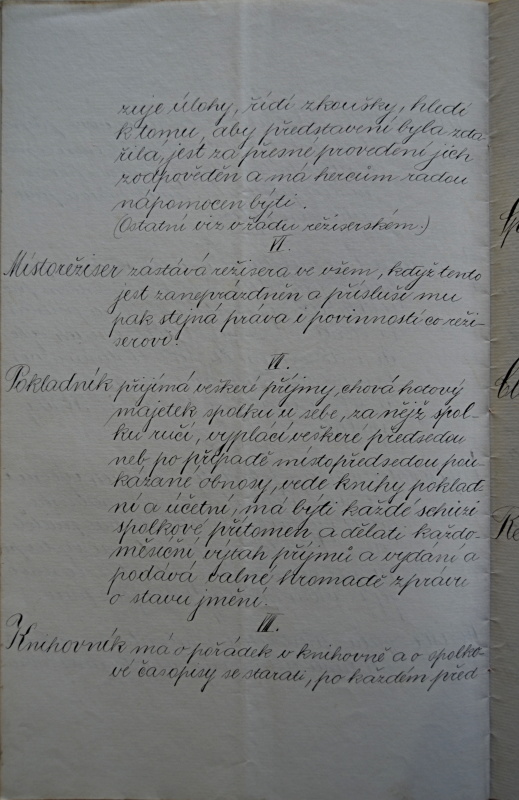 zuje úlohy, řídí zkoušky, hledí
k tomu, aby představení byla zda-
řilá, jest za přesné provedení jich
zodpověděn a má hercům radou
nápomocen býti.
(Ostatní viz v řádu režiserském.)
VI.
Místorežiser zástává režisera ve všem, když tento
jest zaneprázdněn a přísluší mu
pak stejná práva i povinnosti co reži-
serovi.
VII.
Pokladník přijímá veškeré příjmy, chová hotový
majetek spolku u sebe, za nějž spol-
ku ručí, vyplácí veškeré předsedou
neb po případě místopředsedou pou-
kázané obnosy, vede knihy poklad-
ní a účetní; má býti každé schůzi
spolkové přítomen a dělati každo-
měsíční výtah příjmů a vydání a
podává valné hromadě zprávu
o stavu jmění.
VIII.
Knihovník má o pořádek v knihovně a o spolko-
vé časopisy se starati, po každém před